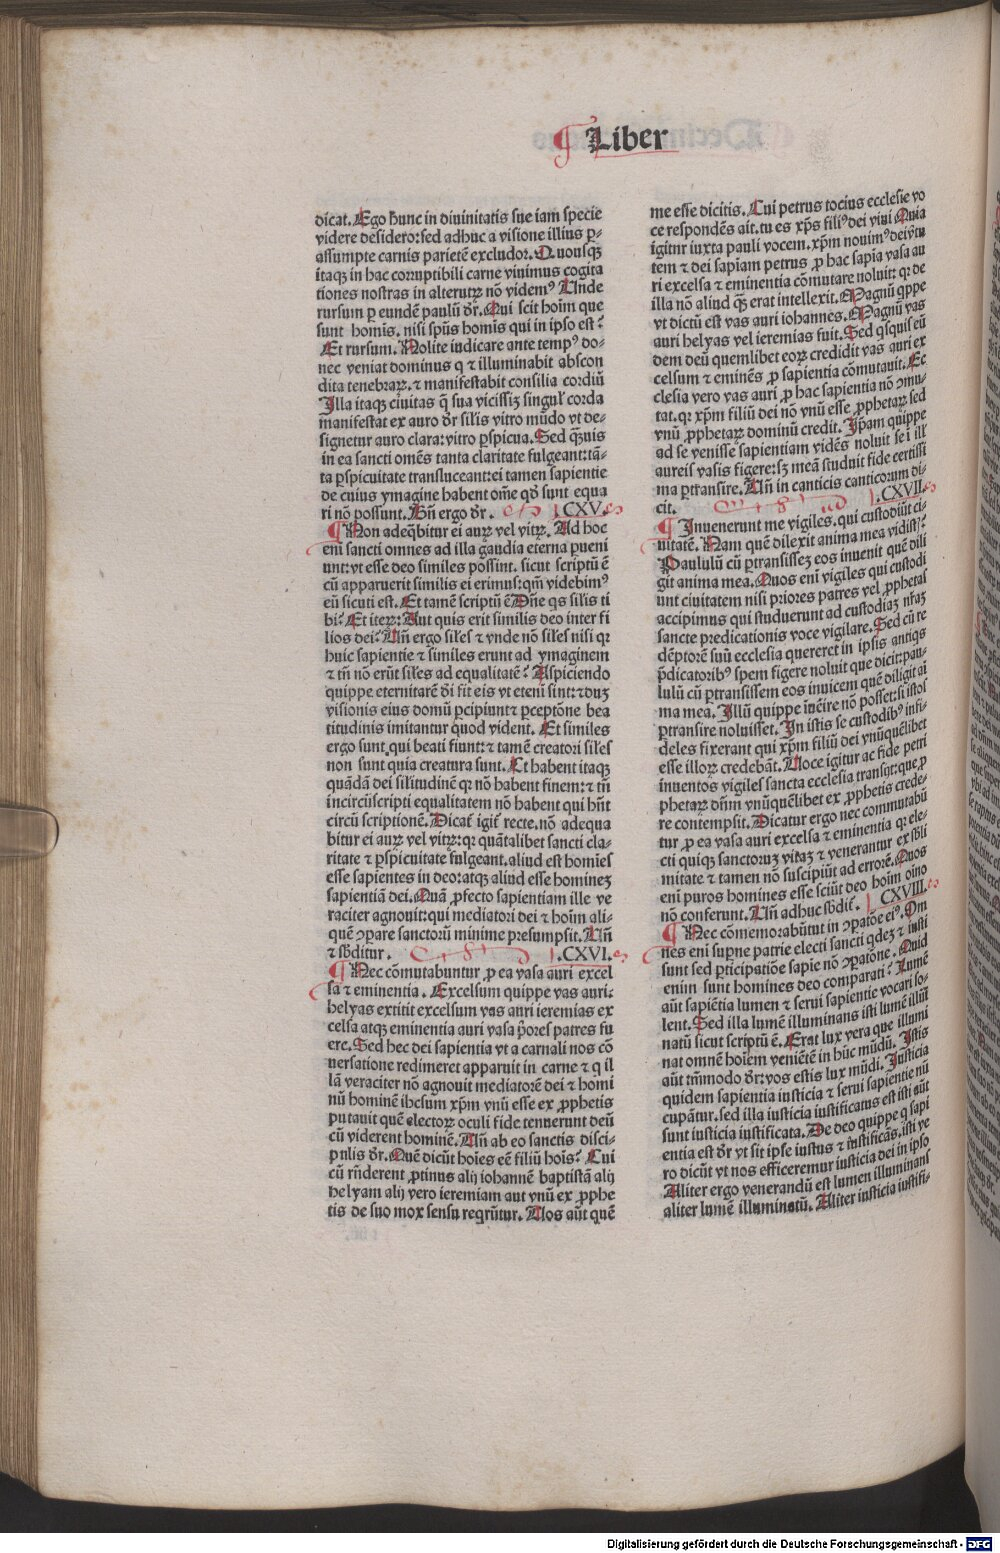 ¶ Liber
dicat. Ego hunc in diuinitatis sue iam specie
videre desidero: sed adhuc a visione illius ꝑ-
assumpte carnis parietē excludor. Quousqꝫ
itaqꝫ in hac corruptibili carne viuimus cogita
tiones nostras in alterutrꝫ nō videmꝰ Vn̄de
rursum ꝑ eundē paulū dr̄. Qui scit hoīm que
sunt homīs. nisi spūs homīs qui in ipso est?
Et rursum. Nolite iudicare ante tempꝰ do-
nec veniat dominus q ⁊ illuminabit abscon
dita tenebraꝝ. ⁊ manifestabit consilia cordiū
Illa itaqꝫ ciuitas q̄ sua vicissiꝫ singul̕ corda
manifestat ex auro dr̄ silis vitro mūdo vt de-
signetur auro clara: vitro ꝑspicua. Sed q̄uis
in ea sancti om̄es tanta claritate fulgeant: tā-
ta ꝑspicuitate transluceant: ei tamen sapientie
de cuius ymagine habent om̄e qd̄ sunt equa
ri nō possunt. Bn̄ ergo dr̄. .CXV.
¶ Non adeq̄bitur ei auꝝ vel vitꝝ. Ad hoc
eni sancti omnes ad illa gaudia eterna pueni
unt: vt esse deo similes possint. sicut scriptū ē
cū apparuerit similis ei erimus: qm̄ videbimꝰ
eū sicuti est. Et tamē scriptū ē Dn̄e qs silis ti
bi? Et iteꝝ: Aut quis erit similis deo inter fi
lios dei? Vn̄ ergo siles ⁊ vnde nō siles nisi qꝛ
huic sapientie ⁊ similes erunt ad ymaginem
⁊ tn̄ nō erūt siles ad equalitatē? Aspiciendo
quippe eternitatē dī fit eis vt eterni sint: ⁊ duꝫ
visionis eius domū ꝑcipiunt ꝑ ꝑceptōne bea
titudinis imitantur quod vident. Et similes
ergo sunt qui beati fiunt: ⁊ tamē creatori siles
non sunt quia creatura sunt. Et habent itaqꝫ
quādā dei silitudinē qꝛ nō habent finem: ⁊ tn̄
incircūscripti equalitatem nō habent qui hn̄t
circū scriptionē. Dicat̄ igit̄ recte. nō adequa
bitur ei auꝝ vel vitꝝ: qꝛ quātalibet sancti cla-
ritate ⁊ ꝑspicuitate fulgeant. aliud est homīes
esse sapientes in deo: atqꝫ aliud esse hominez
sapientiā dei. Quā ꝓfecto sapientiam ille ve
raciter agnouit: qui mediatori dei ⁊ hoīm ali-
quē ꝯpare sanctorū minime presumpsit. Vn̄
⁊ sb̄ditur. .CXVI.
¶ Nec cōmutabuntur ꝓ ea vasa auri excel
sa ⁊ eminentia. Excelsum quippe vas auri:
helyas extitit excelsum vas auri ieremias ex
celsa atqꝫ eminentia auri vasa p̄ores patres fu
ere. Sed hec dei sapientia vt a carnali nos cō
uersatione redimeret apparuit in carne ⁊ q il
lā veraciter nō agnouit mediatorē dei ⁊ homi
nū hominē ihesum xp̄m vnū esse ex ꝓphetis
putauit quē electoꝝ oculi fide tenuerunt deū
cū viderent hominē. Vn̄ ab eo sanctis disci-
pulis dr̄. Quē dicūt hoīes eē filiū hoīs? Cui
cū rn̄derent ꝓtinus alij iohannē baptistā alij
helyam alij vero ieremiam aut vnū ex ꝓphe
tis de suo mox sensu reqr̄utur. Vos aūt quē
me esse dicitis. Cui petrus tocius ecclesie vo
ce respondēs ait. tu es xp̄s filiꝰ dei viui Quia
igitur iuxta pauli vocem. xp̄m nouimꝰ dei v̄tu
tem ⁊ dei sapiam petrus ꝓ hac sapia vasa au
ri excelsa ⁊ eminentia cōmutare noluit: qꝛ de
illa nō aliud q̄ꝫ erat intellexit. Magnū qppe
vt dictū est vas auri iohannes. Magnū vas
auri helyas vel ieremias fuit. Sed qsquis eū
dem deū quemlibet eoꝝ credidit vas auri ex
celsum ⁊ eminēs ꝓ sapientia cōmutauit. Ec
clesia vero vas auri ꝓ hac sapientia nō ꝯmu-
tat. qꝛ xp̄m filiū dei nō vnū esse ꝓphetaꝝ sed
vnū ꝓphetaꝝ dominū credit. Ip̄am quippe
ad se venisse sapientiam vidēs noluit se ī ill̕
aureis vasis figere: sꝫ meā studuit fide certissi
ma ꝑtransire. Vn̄ in canticis canticorum di-
cit. .CXVII.
¶ Inuenerunt me vigiles. qui custodiūt ci-
uitatē. Nam quē dilexit anima mea vidistꝭ?
Paululū cū ꝑtransissez eos inuenit quē dili
git anima mea. Quos eni vigiles qui custodi
unt ciuitatem nisi priores patres vel ꝓphetas
accipimus qui studuerunt ad custodiaꝫ nr̄aꝫ
sancte predicationis voce vigilare. Sed cū re
dēptorē suū ecclesia quereret in ipsis antiqs
p̄dicatoribꝰ spem figere noluit que dicit: pau-
lulū cū ꝑtransissem eos inuicem quē diligit aī
ma mea. Illū quippe īuēire nō posset: si istos
ꝑtransire noluisset. In istis se custodibꝰ infi-
deles fixerant qui xp̄m filiū dei vnūquēlibet
esse illoꝝ credebāt. Uoce igitur ac fide petri
inuentos vigiles sancta ecclesia transijt: que ꝓ
phetaꝝ dn̄m vnūquēlibet ex ꝓphetis crede-
re contempsit. Dicatur ergo nec commutabū
tur ꝓ ea vasa auri excelsa ⁊ eminentia qꝛ ele-
cti quiqꝫ sanctoruꝫ vitaꝫ ⁊ venerantur ex sb̄li
mitate ⁊ tamen nō suscipiūt ad errorē. Quos
eni puros homines esse sciūt deo hoīm oīno
nō conferunt. Vn̄ adhuc sb̄dit̄. .CXVIII.
¶ Nec cōmemorabūtut in ꝯpatōe eiꝰ. Om
nes eni supne patrie electi sancti qdeꝫ ⁊ iusti
sunt sed ꝑticipatiōe sapie nō ꝯpatōne. Quid
enim sunt homines deo comparati? Lumē
aūt sapiētia lumen ⁊ serui sapientie vocari so-
lent. Sed illa lumē illuminans isti lumē illūī
natū sicut scriptū ē. Erat lux vera que illumi
nat omnē hoīem veniētē in hūc mūdū. Istis
aūt tm̄modo dr̄: vos estis lux mūdi. Iusticia
quidem sapientia iusticia ⁊ serui sapientie nū
cupātur. sed illa iusticia iustificatus est isti aūt
sunt iusticia iustificata. De deo quippe q sapi
entia est dr̄ vt sit ipse iustus ⁊ iustificās. isti ve
ro dicūt vt nos efficeremur iusticia dei in ipso
Aliter ergo venerandū est lumen illuminans
aliter lumē illuminatū. Aliter iusticia iustifi-
Digitalisierung gefördert durch die Deutsche Forschungsgemeinschaft - DFG